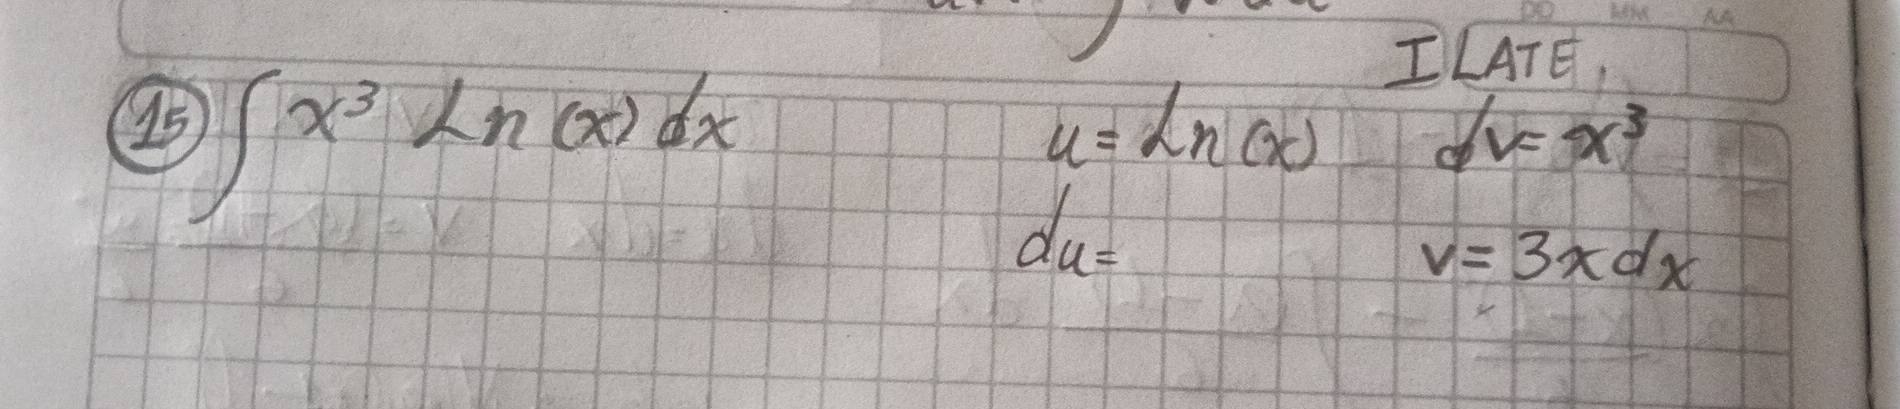 DD MM AA
I LATE,
15 ∫ x³ Ln (x) dx u = Ln (x) dv = x³
du = v = 3x dx